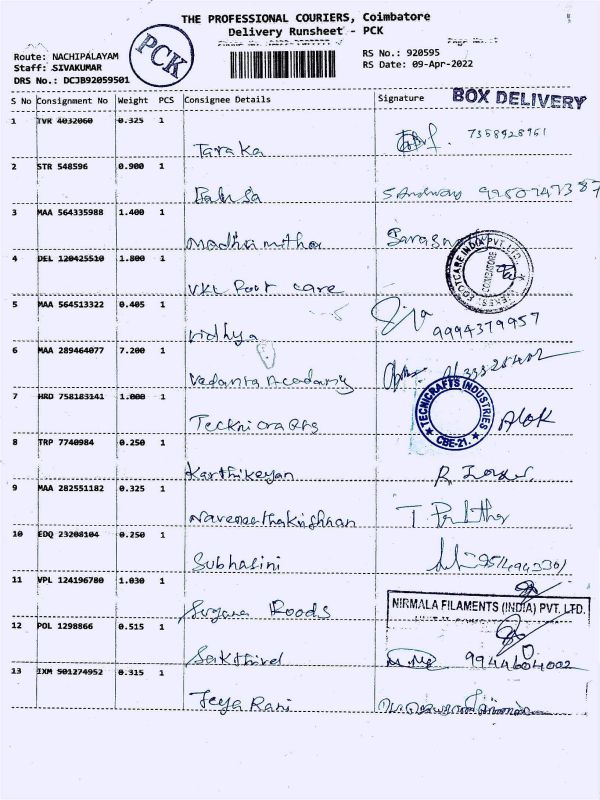 THE PROFESSIONAL COURIERS, Coimbatore
Delivery Runsheet - PCK
PCK
Route: NACHIPALAYAM
Staff: SIVAKUMAR
DRS No.: DCJB92059501
RS No.: 920595
RS Date: 09-Apr-2022
S No Consignment No Weight PCS Consignee Details Signature BOX DELIVERY
1 IVR 4032060 0.325 1
Taraka 7358928961
2 STR 548596 0.900 1
3 MAA 564335988 1.400 1
Madhumitha
4 DEL 120425510 1.800 1
VKL Foot care
5 MAA 564513322 0.405 1
Vidhya 9994379957
6 MAA 289464077 7.200 1
Vedanta Acadamy
7 HRD 758183141 1.000 1
Technicrafts
TECNICRAFTS INDUSTRIES
CBE-21.
Alok
8 TRP 7740984 0.250 1
Karthikeyan
9 MAA 282551182 0.325 1
Navaneethakrishnan
10 EDQ 23208104 0.250 1
Subhasini
11 VPL 124196780 1.030 1
NIRMALA FILAMENTS (INDIA) PVT. LTD.
12 POL 1298866 0.515 1
Sakthivel 9944604002
13 IXM 901274952 0.315 1
Jeya Rani